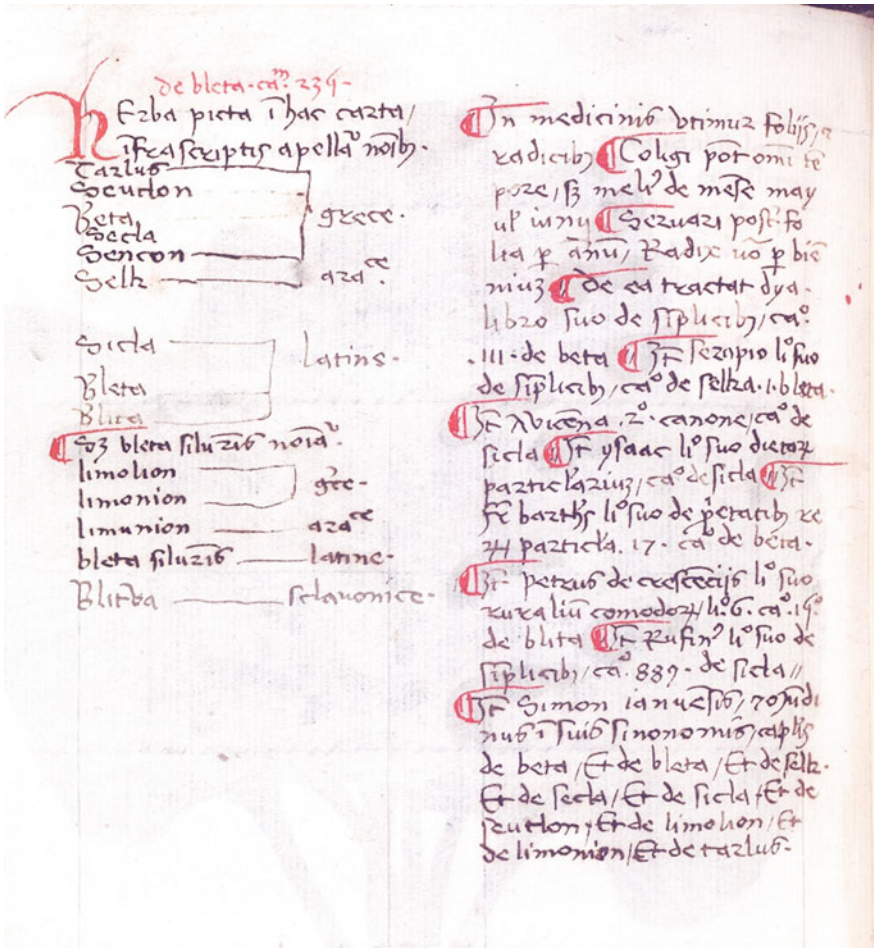 de bleta. caᵐ. 239.
HErba picta ī hac carta/
īfrascriptis apellaͭ noībꝫ.
Tarlus
Seutlon
Beta grece.
Secla
Sencon
Selk araᶜᵉ.
Sicla latine.
Bleta
Blita
Sꝫ bleta siluēris noīaͭ.
limolion gͬce.
limonion
limunion araᶜᵉ
bleta siluēris latine.
Blitba sclauonice.
¶ In medicinis vtimur folijs,
radicibꝫ ¶ Coligi pōt omī tē
pore, sꝫ meliꝰ de mēse may
ul iunij ¶ Seruari posͭ fo
lia p ānū, Radix uō p biē
niuꝫ ¶ De ea tractat dya.
libro suo de sīplicibꝫ, caº.
.III. de beta ¶ Iͭ serapio liº suo
de sīplicibꝫ, caº de selka. i. bleta.
¶ Iͭ Avicēna .2º. canone, caº de
sicla ¶ Iͭ ysaac liº suo dietaꝝ
particlariuꝫ, caº de sicla ¶ Iͭ
fē barthꝰ liº suo de ṗetatibꝫ re
ꝝ particla. 17. caº de beta.
¶ Iͭ petrus de crescēcijs liº suo
ruraliū comodoꝝ, liº 6. caº. 15º
de blita ¶ Iͭ Rufinꝰ liº suo de
sīplicibꝫ, caº. 889. de sicla //
¶ Iͭ Simon ianuēsis,
nus ī suis sinonomis, caplis
de beta, Et de bleta, Et de selk.
Et de secla, Et de sicla, Et de
seutlon, Et de limolion, Et
de limonion, Et de tarlus.